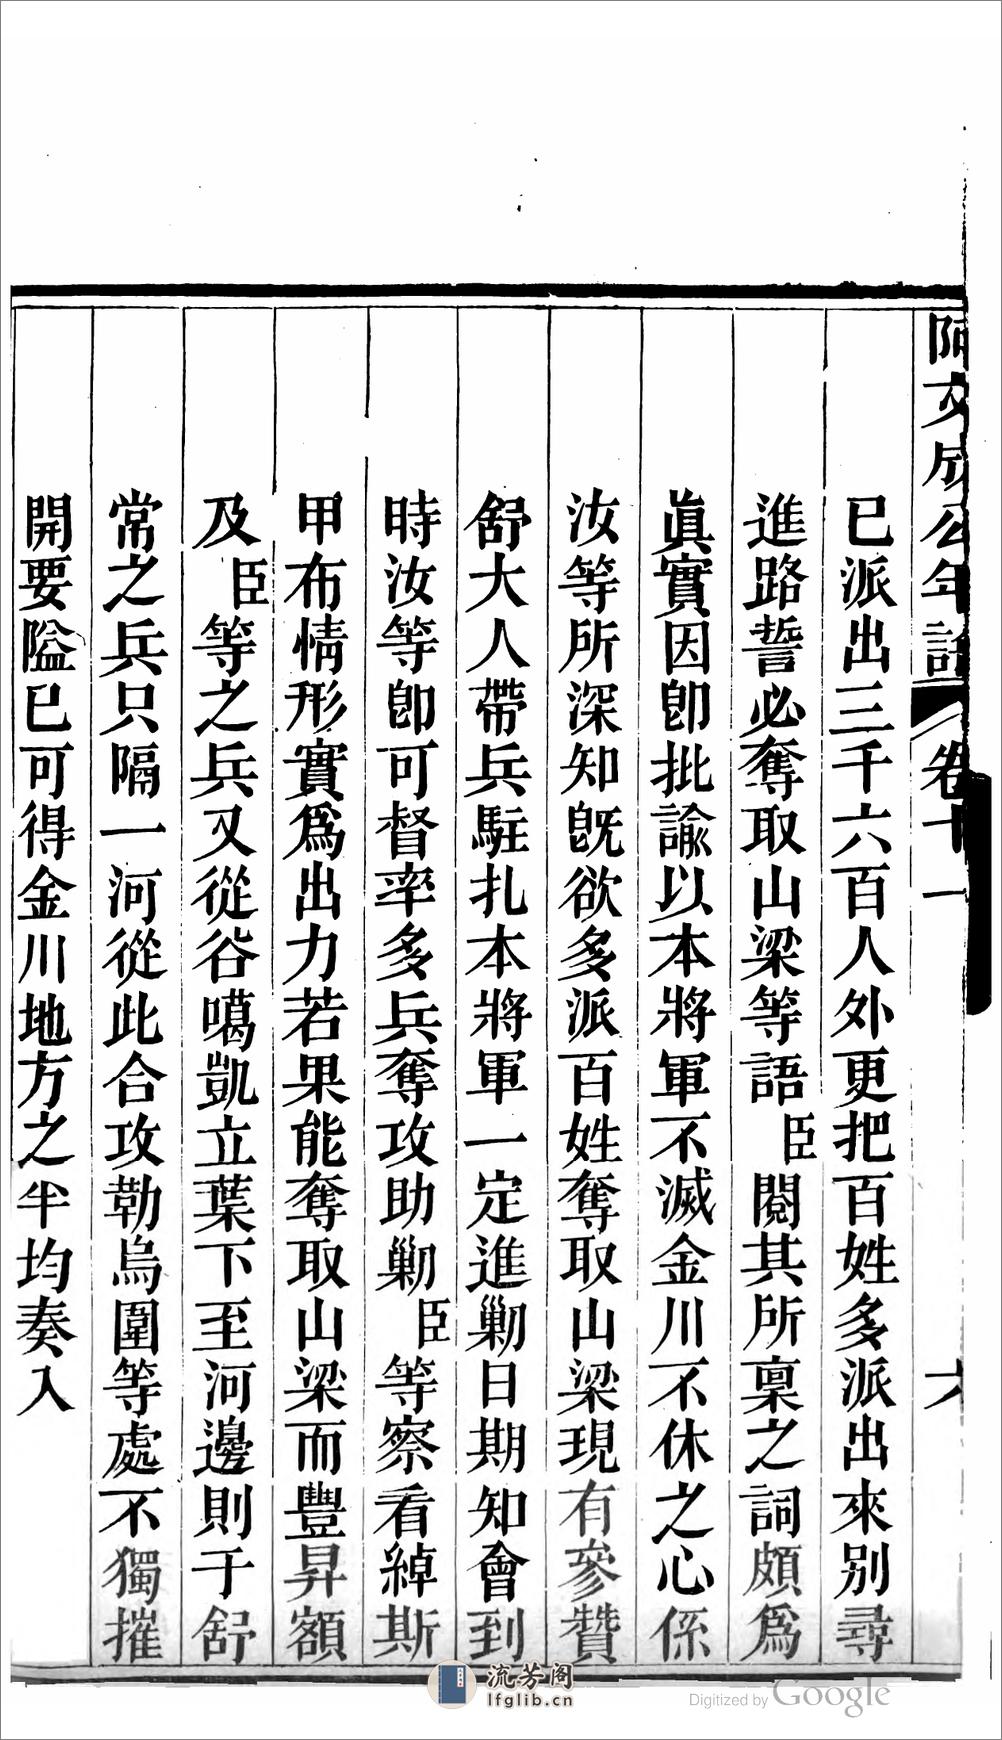 阿文成公年譜 卷十一 六
已派出三千六百人外更把百姓多派出來别尋
進路誓必奪取山梁等語臣閱其所稟之詞頗爲
眞實因卽批諭以本將軍不滅金川不休之心係
汝等所深知旣欲多派百姓奪取山梁現有參贊
舒大人帶兵駐扎本將軍一定進勦日期知會到
時汝等卽可督率多兵奪攻助勦臣等察看綽斯
甲布情形實爲出力若果能奪取山梁而豐昇額
及臣等之兵又從谷噶凱立葉下至河邊則于舒
常之兵只隔一河從此合攻勒烏圍等處不獨摧
開要隘已可得金川地方之半均奏入
流芳阁
lfglib.cn
Digitized by Google